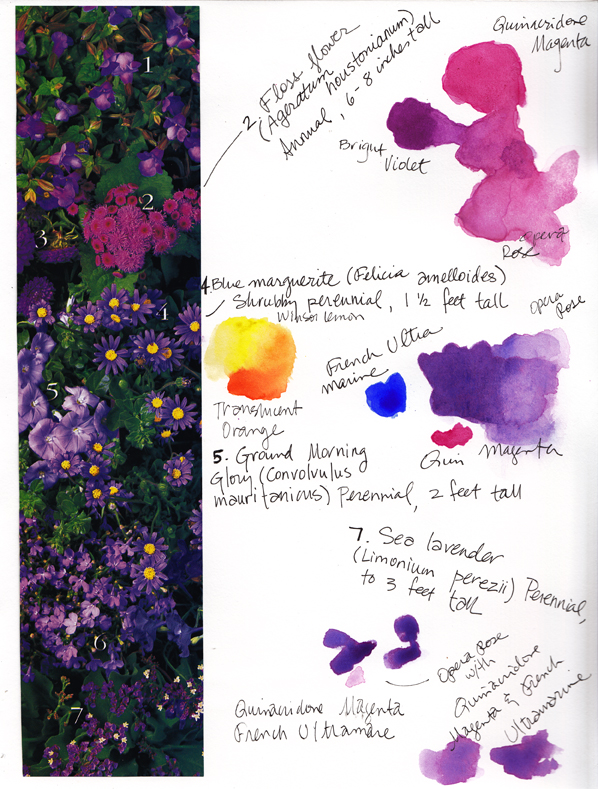 1
2
3
4
5
6
7
2 Floss flower
(Ageratum houstonianum)
Annual, 6-8 inches tall
Quinacridone
Magenta
Bright
Violet
Opera
Rose
4. Blue marguerite (Felicia amelloides)
Shrubby perennial, 1 ½ feet tall
Winsor Lemon
Translucent
Orange
French Ultra
marine
Opera
Rose
Quin Magenta
5. Ground Morning
Glory (Convolvulus
mauritanicus) Perennial, 2 feet tall
7. Sea lavender
(Limonium perezii) Perennial,
to 3 feet
tall
Quinacridone Magenta
French Ultramare
Opera Rose
with
Quinacridone
Magenta & French
Ultramarine